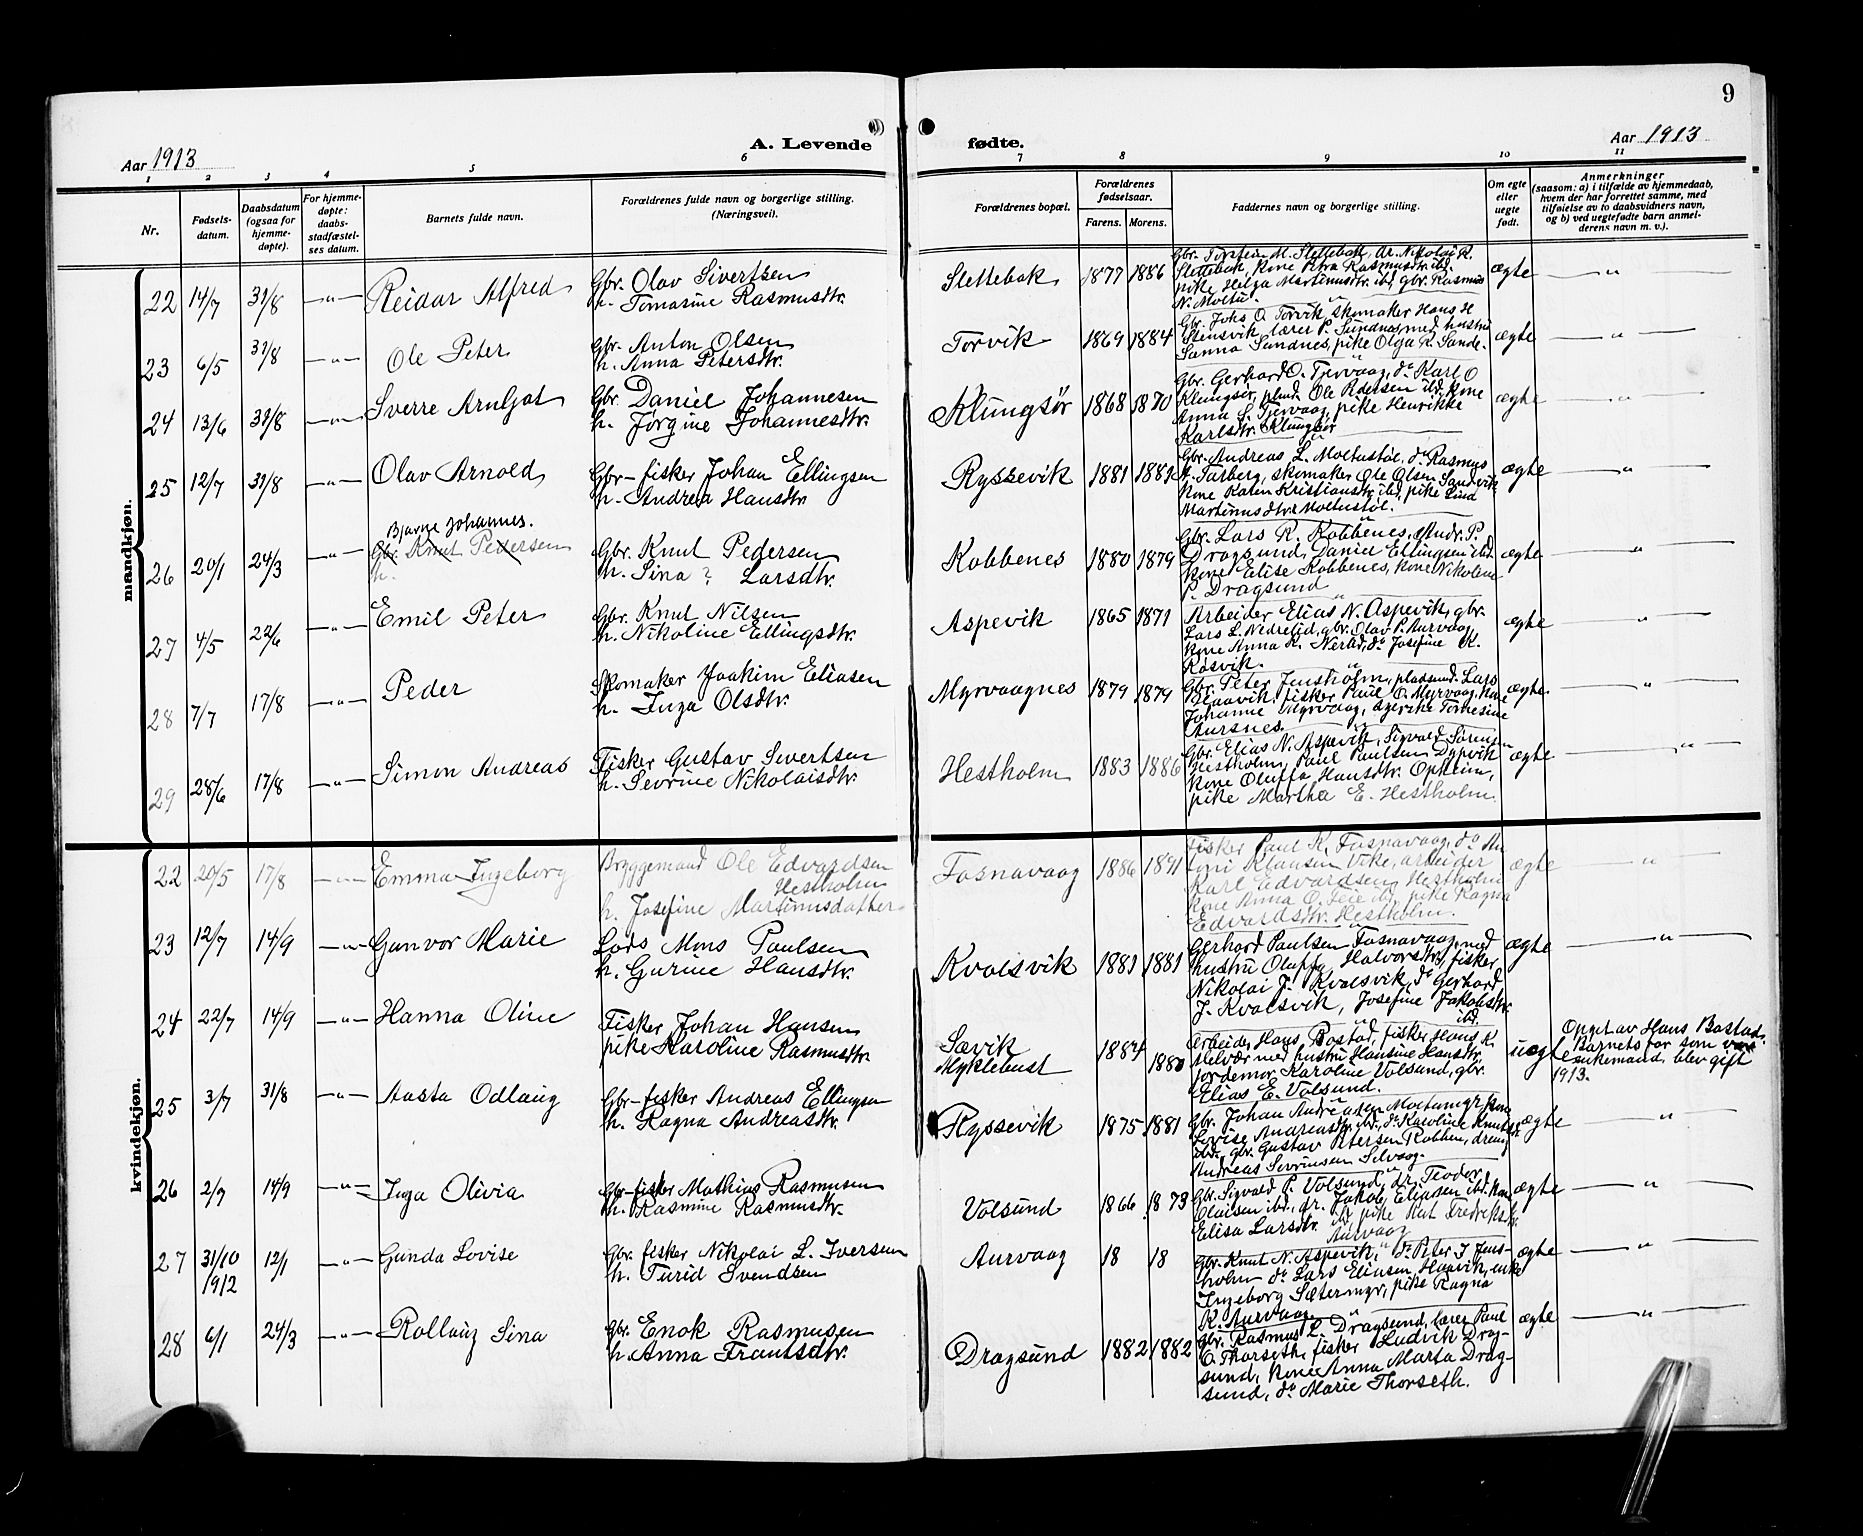 9
Aar 1913
A. Levende
fødte.
Aar 1913
1 2 3 4 5 6 7 8 9 10 11
Nr.
Fødsels-
datum.
Daabsdatum
(ogsaa for
hjemme-
døpte).
For hjemme-
døpte:
daabs-
stadfæstel-
ses datum.
Barnets fulde navn.
Forældrenes fulde navn og borgerlige stilling.
(Næringsvei).
Forældrenes bopæl.
Forældrenes
fødselsaar.
Farens. Morens.
Faddernes navn og borgerlige stilling.
Om egte
eller
uegte
født.
Anmerkninger
(saasom: a) i tilfælde av hjemmedaab,
hvem der har forrettet samme, med
tilføielse av to daabsvidners navn,
og b) ved uegtefødte barn anmel-
derens navn m. v.).
mandkjøn.
22 14/7 31/8 —"— Reidar Alfred
Gbr. Olav Sivertsen
h. Tomasine Rasmusdtr.
Slettebak 1877 1886
Gbr. Torstein M. Slettebak, dr. Nikolai R.
Slettebak, kone Petra Rasmusdtr. ibd.
pike Helga Martinusdtr. ibd, gbr. Rasmus
N. Moltu.
ægte —"—
23 6/5 31/8 —"— Ole Peter
Gbr. Anton Olsen
h. Anna Petersdtr.
Torvik 1869 1884
Gbr. Johs O. Torvik, skomaker Hans H
Stensvik, lærer P. Sundnes med hustru
Sanna Sundnes, pike Olga R. Sande.
ægte —"—
24 13/6 31/8 —"— Sverre Arnljot
Gbr. Daniel Johannesen
h. Jørgine Johannesdtr.
Klungsør 1868 1870
Gbr. Gerhard O. Tjervaag, do Karl O
Klungsør, plmd. Ole Pedersen ibd. kone
Anna S. Tjervaag, pike Henrikke
Karlsdtr. Klungsør
ægte —"—
25 12/7 31/8 —"— Olav Arnold
Gbr-fisker Johan Ellingsen
h. Andrea Hansdtr.
Ryssevik 1881 1882
Gbr. Andreas L. Moltustøl, do Rasmus
Tarberg, skomaker Ole Olsen Sandvik
kone Karen Kristiansdtr. ibd, pike Lina
Martinusdtr. Moltustøl.
ægte —"—
Bjarne Johannes.
26 20/1 24/3 —"— Gbr. Knut Pedersen
h.
Gbr. Knut Pedersen
h. Sina ? Larsdtr.
Kobbenes 1880 1879
Gbr. Lars R. Kobbenes, Andr. P.
Dragsund, Daniel Ellingsen ibd.
kone Elise Kobbenes, kone Nikoline
P. Dragsund
ægte —"—
27 4/5 22/6 —"— Emil Peter
Gbr. Knut Nilsen
h. Nikoline Ellingsdtr.
Aspevik 1865 1871
Arbeider Elias N. Aspevik, gbr.
Lars L. Nedrelid, gbr. Olav P. Aurvaag,
kone Anna K. Nerlid, do Josefine K.
Røsvik.
ægte —"—
28 7/7 17/8 —"— Peder
Skomaker Joakim Eliasen
h. Inga Olsdtr.
Myrvaagnes 1879 1879
Gbr. Peter Jensholm, pladsmd. Lars
Haavik, fisker Paul O. Myrvaag, kone
Johanne Myrvaag, syerske Tomesine
Aursnes.
ægte —"—
29 28/6 17/8 —"— Simon Andreas
Fisker Gustav Sivertsen
h. Sevrine Nikolaisdtr.
Hestholm 1883 1886
Gbr. Elias N. Aspevik, Sigvald Sørensen
Hestholm, Paul Paulsen Dypvik
kone Oluffa Hansdtr. Opheim,
pike Martha E. Hestholm.
ægte —"—
kvindekjøn.
22 20/5 17/8 —"— Emma Ingeborg
Bryggemand Ole Edvardsen
Hestholm
h. Josefine Martinusdatter
Fosnavaag 1886 1891
Fisker Paul K. Fosnavaag, do An
toni Klausen Vike, arbeider
Karl Edvardsen Hestholm
kone Anna O. Teie ibd, pike Ragna
Edvardsdtr. Hestholm.
ægte —"—
23 12/7 14/9 —"— Gunvor Marie
Lods Mons Paulsen
h. Gurine Hansdtr.
Kvalsvik 1881 1881
Gerhard Paulsen Fosnavaag, med
hustru Oluffa Halvorsdtr, fisker
Nikolai J. Kvalsvik, do Gerhard
J. Kvalsvik, Josefine Jakobsdtr.
ibd.
ægte —"—
24 22/7 14/9 —"— Hanna Oline
Fisker Johan Hansen
pike Karoline Rasmusdtr.
Sævik
Myklebust 1884 1880
Arbeider Hans Bostad, fisker Hans K.
Melvær med hustru Hansine Hansdtr,
jordemor Karoline Volsund, gbr.
Elias E. Volsund.
uægte
Opget av Hans Bostad.
Barnets far som var
enkemand, blev gift
1913.
25 3/7 31/8 —"— Aasta Odlaug
Gbr-fisker Andreas Ellingsen
h. Ragna Andreasdtr.
Ryssevik 1875 1881
Gbr. Johan Andreasen Moltumyr, kone
Lovise Andreasdtr. ibd, do Karoline Knutsdtr.
ibd, gbr. Gustav Petersen Robben, dreng
Andreas Sevrinsen Selvaag.
ægte —"—
26 2/7 14/9 —"— Inga Olivia
Gbr-fisker Mathias Rasmusen
h. Rasmine Rasmusdtr.
Volsund 1866 1873
Gbr. Sigvald P. Volsund, dr. Teodor
Olaisen ibd, dr. Jakob Eliasen ibd. kone
Elisa Larsdtr. ibd, pike Kat. Fredriksdtr.
Aurvaag
ægte —"—
27 31/10
1912 12/1 —"— Gunda Lovise
Gbr. fisker Nikolai L. Iversen
h. Turid Svendsen
Aurvaag 18 18
Gbr. Knut N. Aspevik, do Peter J. Jens-
holm do Lars Eliasen Haavik, enke
Ingeborg Sætermyr, pike Ragna
K. Aurvaag
ægte —"—
28 6/1 24/3 —"— Rollaug Sina
Gbr. Enok Rasmusen
h. Anna Frantsdtr.
Dragsund 1882 1882
Gbr. Rasmus L. Dragsund, lærer Paul
O. Thorseth, fisker Ludvik Drag-
sund, kone Anna Marta Drag-
sund, do Marie Thorseth.
ægte —"—